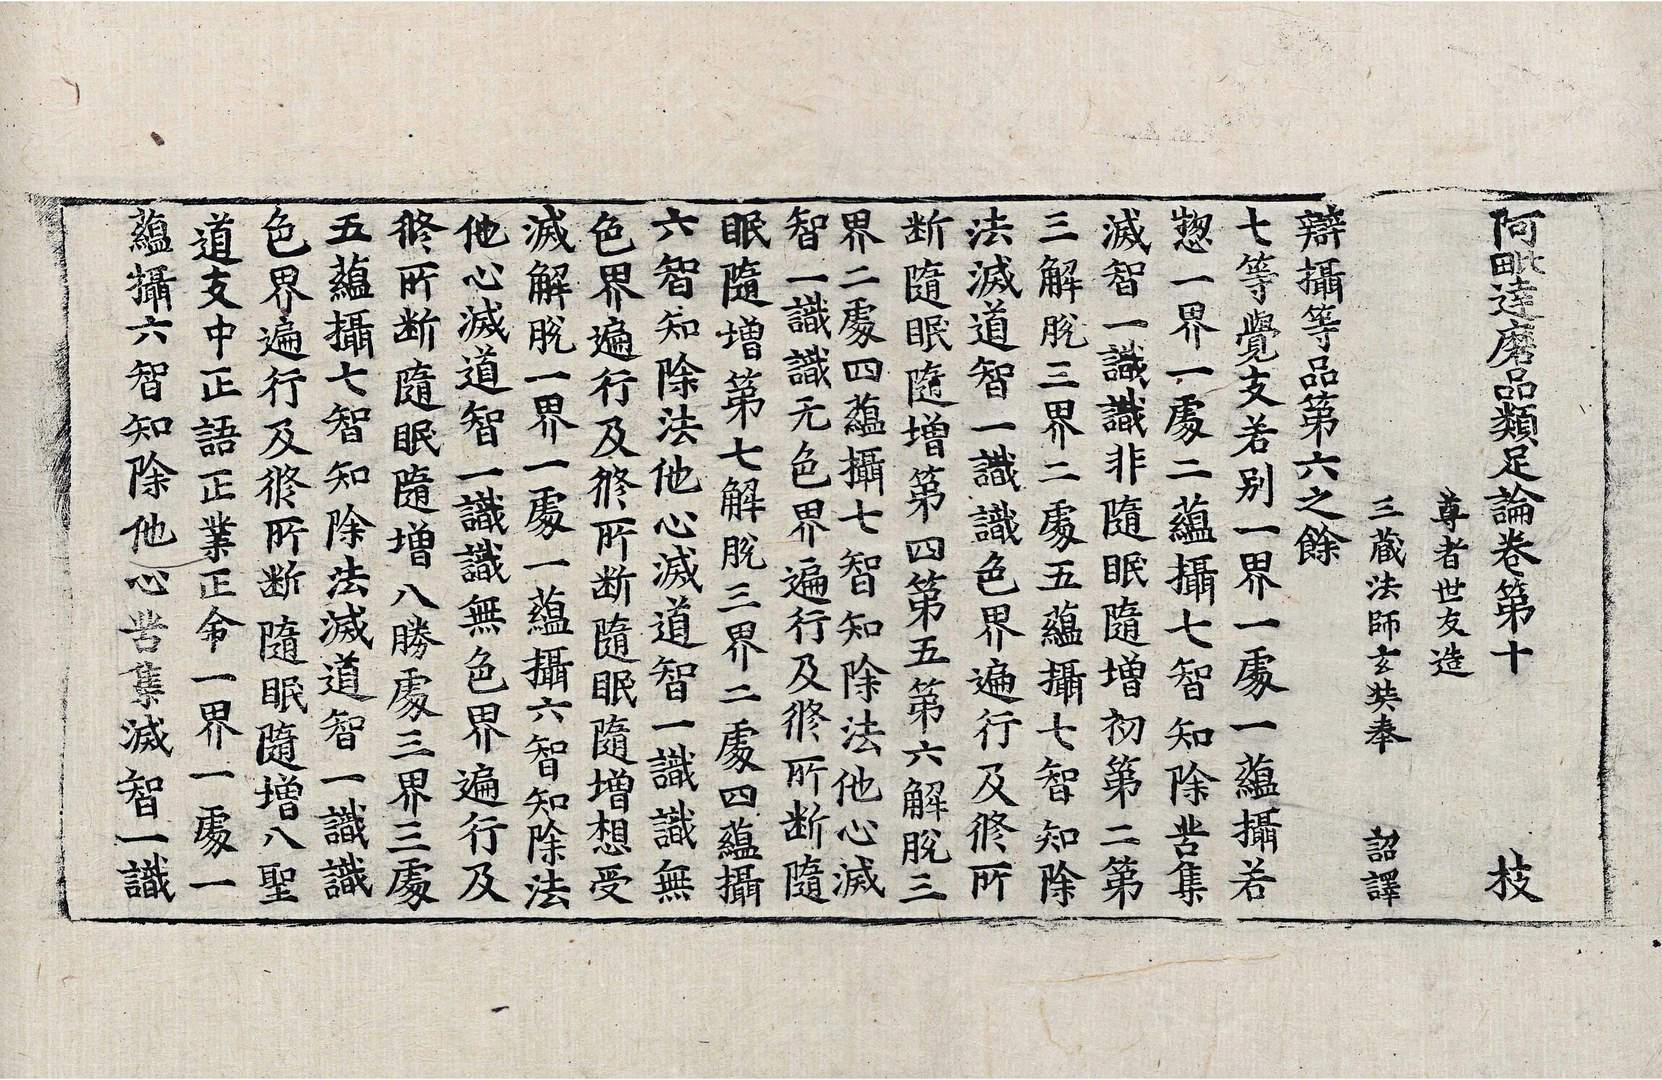 阿毗達磨品類足論卷第十　枝
尊者世友造
三藏法師玄奘奉　詔譯
辯攝等品第六之餘
七等覺支若別一界一處一蘊攝若
惣一界一處二蘊攝七智知除苦集
滅智一識識非隨眠隨增初第二第
三解脫三界二處五蘊攝七智知除
法滅道智一識識色界遍行及修所
断隨眠隨增第四第五第六解脫三
界二處四蘊攝七智知除法他心滅
智一識識无色界遍行及修所断隨
眠隨增第七解脫三界二處四蘊攝
六智知除法他心滅道智一識識無
色界遍行及修所断隨眠隨增想受
滅解脫一界一處一蘊攝六智知除法
他心滅道智一識識無色界遍行及
修所断隨眠隨增八勝處三界三處
五蘊攝七智知除法滅道智一識識
色界遍行及修所断隨眠隨增八聖
道支中正語正業正命一界一處一
蘊攝六智知除他心苦集滅智一識